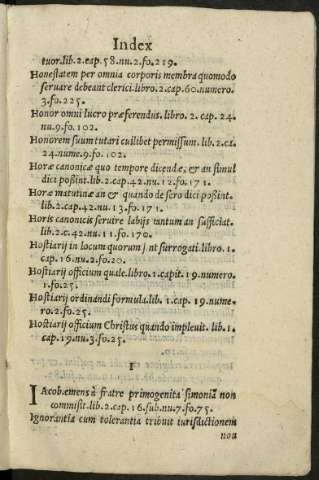 Index
tuor.lib.2.cap.58.nu.2.fo.219.
Honestatem per omnia corporis membra quomodo
seruare debeant clerici.libro.2.cap.60.numero.
3.fo.225.
Honor omni lucro præferendus.libro.2.cap.24.
nu.9.fo.102.
Honorem suum tutari cuilibet permissum.lib.2.ca.
24.nume.9.fo.102.
Horæ canonicæ quo tempore dicendæ, & an simul
dici poßint.lib.2.cap.42.nu.12.fo.171.
Horæ matutinæ an & quando de sero dici poßint.
lib.2.cap.42.nu.13.fo.171.
Horis canonicis seruire labijs tantum an sufficiat.
lib.2.c.42.nu.11.fo.170.
Hostiarij in locum quorum sint surrogati.libro.1.
cap.16.nu.2.fo.20.
Hostiarij officium quale.libro.1.capit.19.numero.
1.fo.25.
Hostiarij ordinandi formula.lib.1.cap.19.nume-
ro.2.fo.25.
Hostiarij officium Christus quando impleuit.lib.1.
cap.19.nu.3.fo.25.
I
IAcob.emens à fratre primogenita simoniã non
commisit.lib.2.cap.16.sub.nu.7.fo.75.
Ignorantia cum tolerantia tribuit iurisdictionem
non